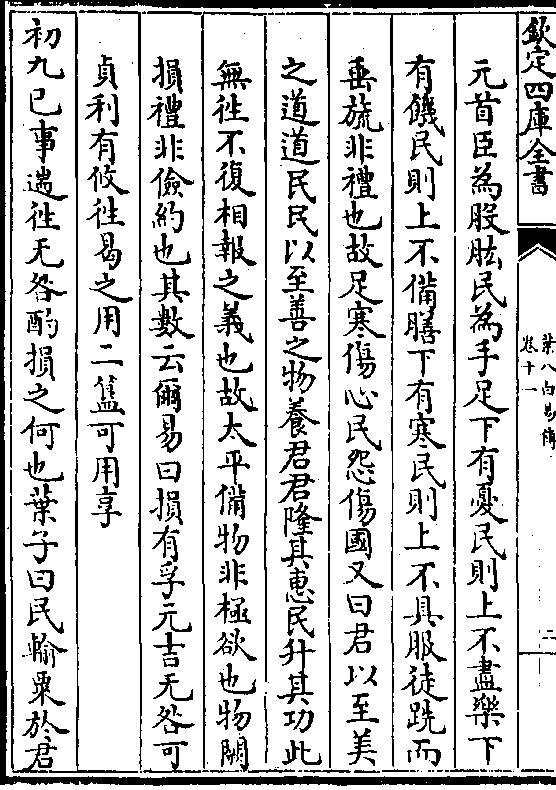 欽定四庫全書
葉八白易傳
卷十一
二
元首臣為股肱民為手足下有憂民則上不盡樂下
有饑民則上不備膳下有寒民則上不具服徒跣而
垂旒非禮也故足寒傷心民怨傷國又曰君以至美
之道道民民以至善之物養君君隆其惠民升其功此
無徃不復相報之義也故太平備物非極欲也物闕
損禮非儉約也其數云爾易曰損有孚元吉无咎可
貞利有攸徃曷之用二簋可用享
初九已事遄徃无咎酌損之何也葉子曰民輸粟於君